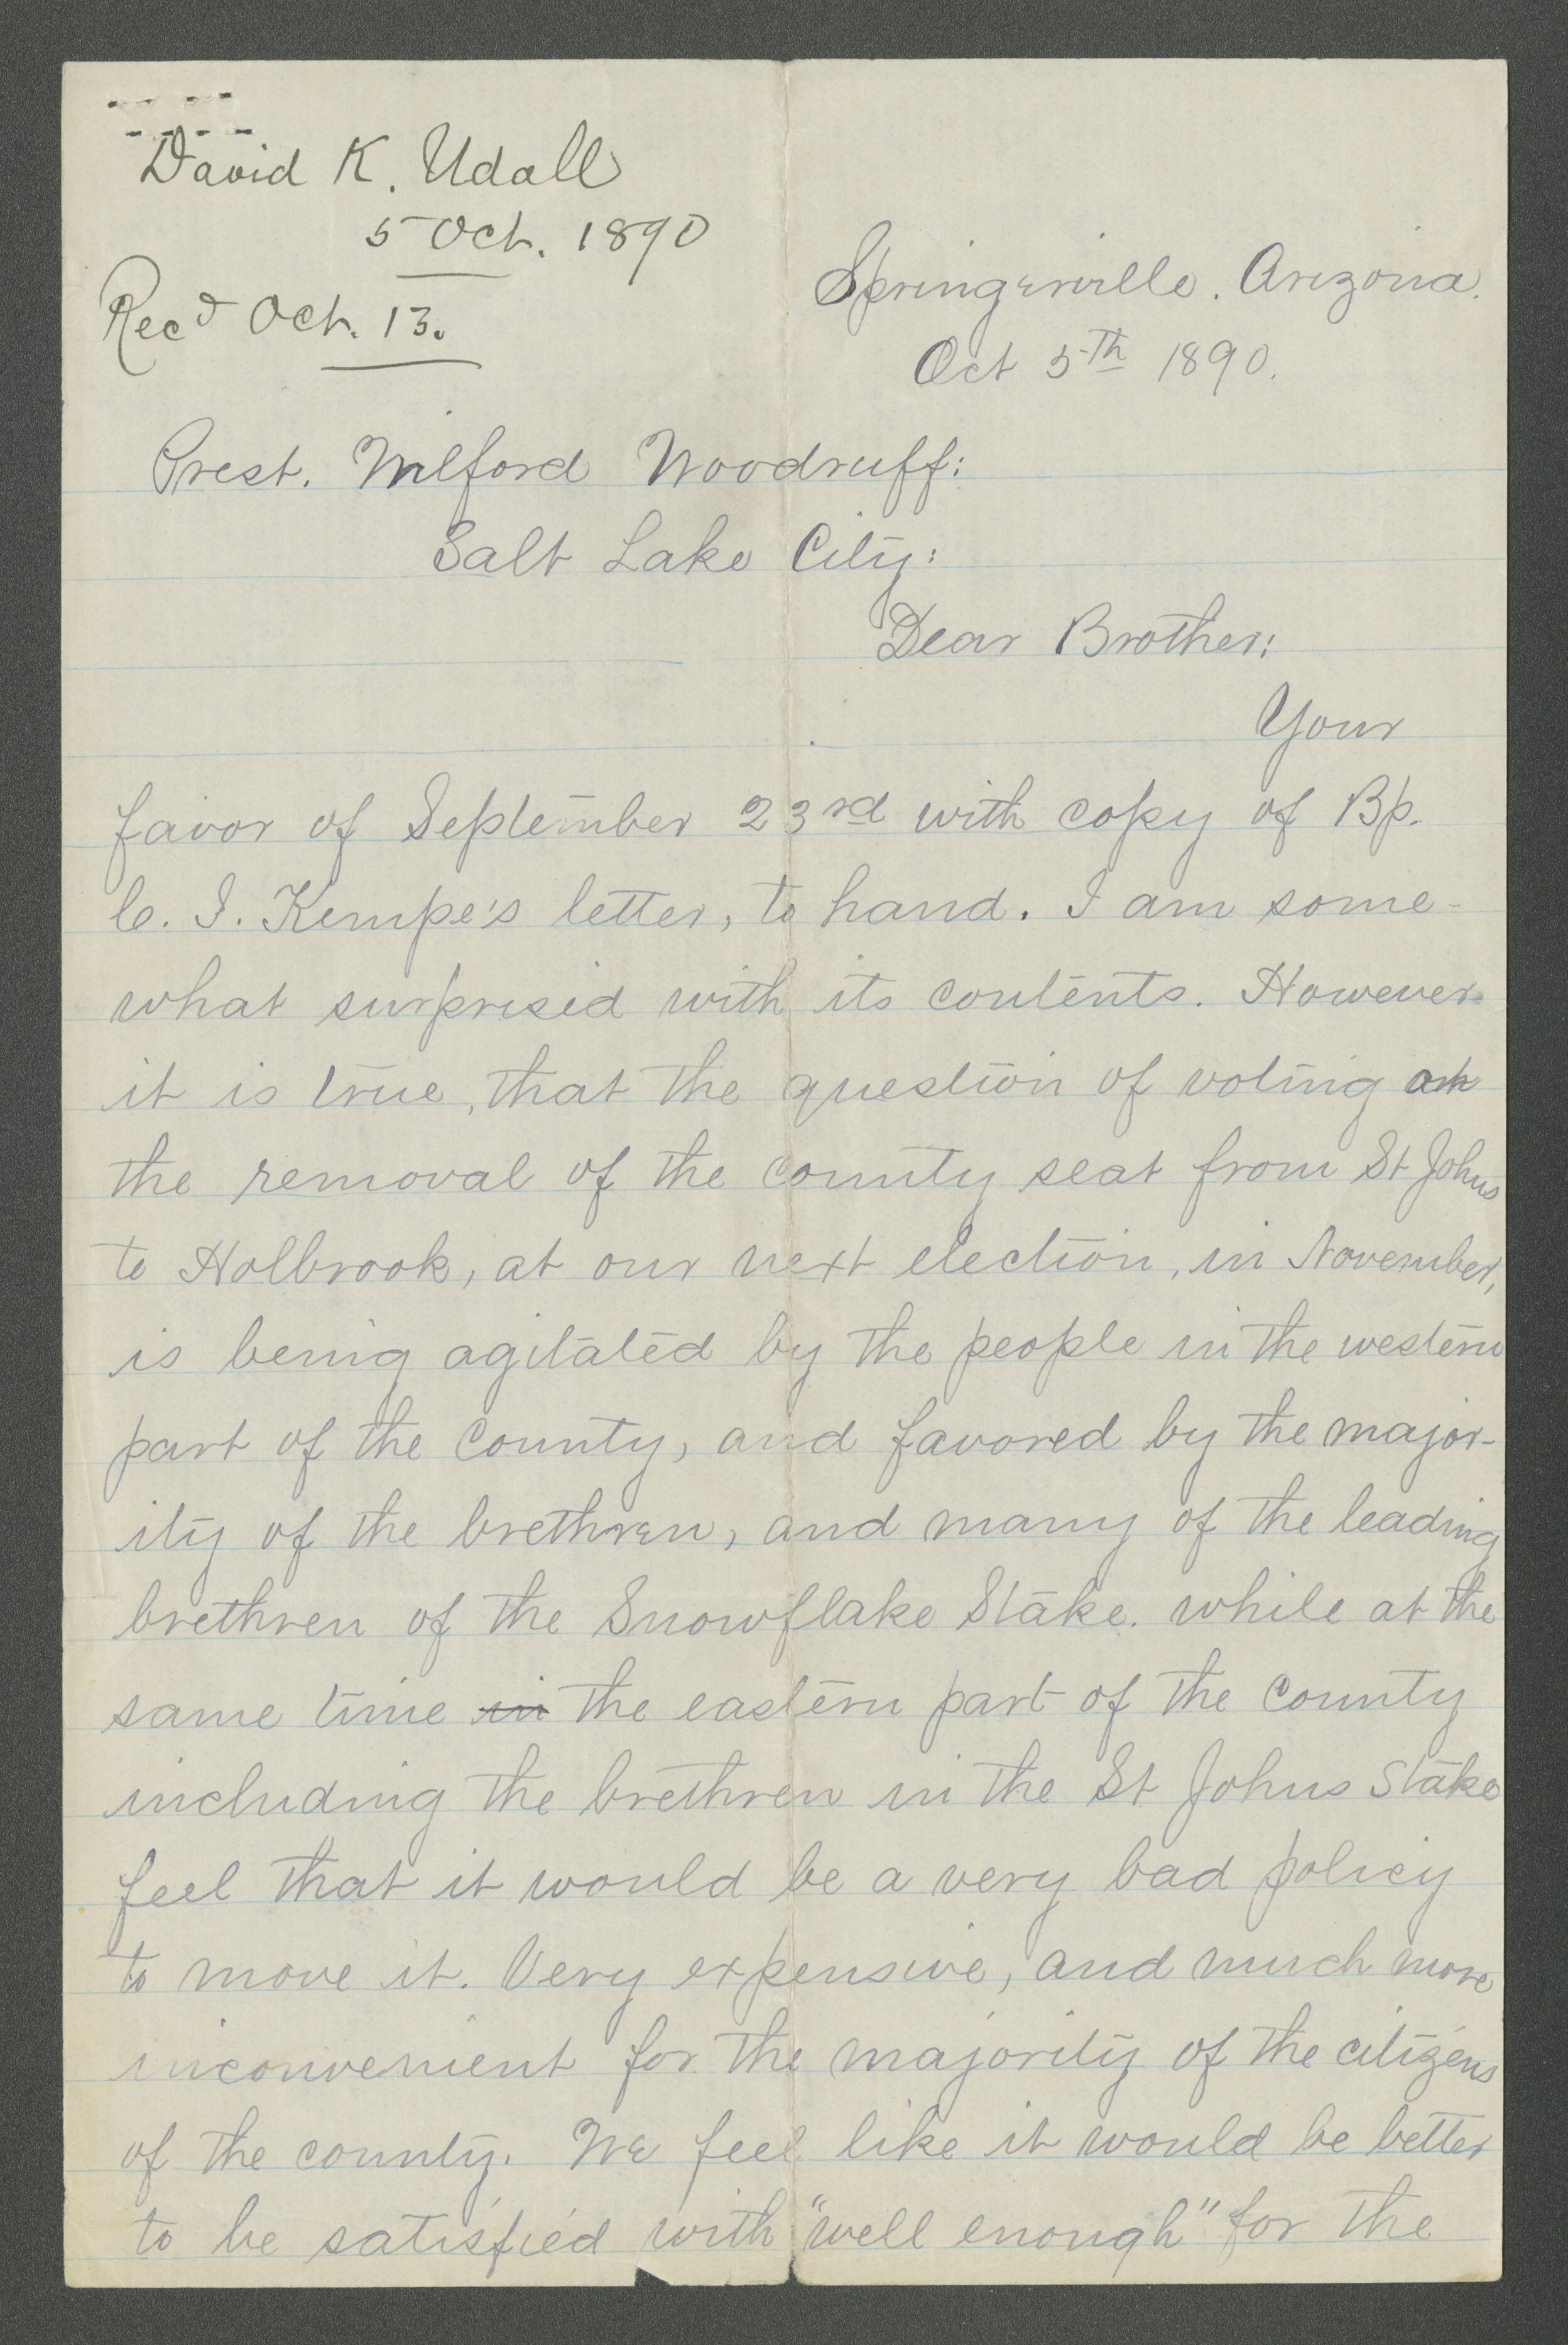 David K. Udall
5 Oct. 1890
Rec'd Oct. 13.
Springerville. Arizona.
Oct 5th 1890.
Prest. Wilford Woodruff:
Salt Lake City:
Dear Brother:
Your
favor of September 23rd with copy of Bp.
C. I. Kempe's letter, to hand. I am some-
what surprised with its contents. However
it is true, that the question of voting on
the removal of the county seat from St Johns
to Holbrook, at our next election, in November,
is being agitated by the people in the western
part of the County, and favored by the major-
ity of the brethren, and many of the leading
brethren of the Snowflake Stake. while at the
same time in the eastern part of the County
including the brethren in the St Johns Stake
feel that it would be a very bad policy
to move it. Very expensive, and much more
inconvenient for the majority of the citizens
of the county. We feel like it would be better
to be satisfied with "well enough" for the